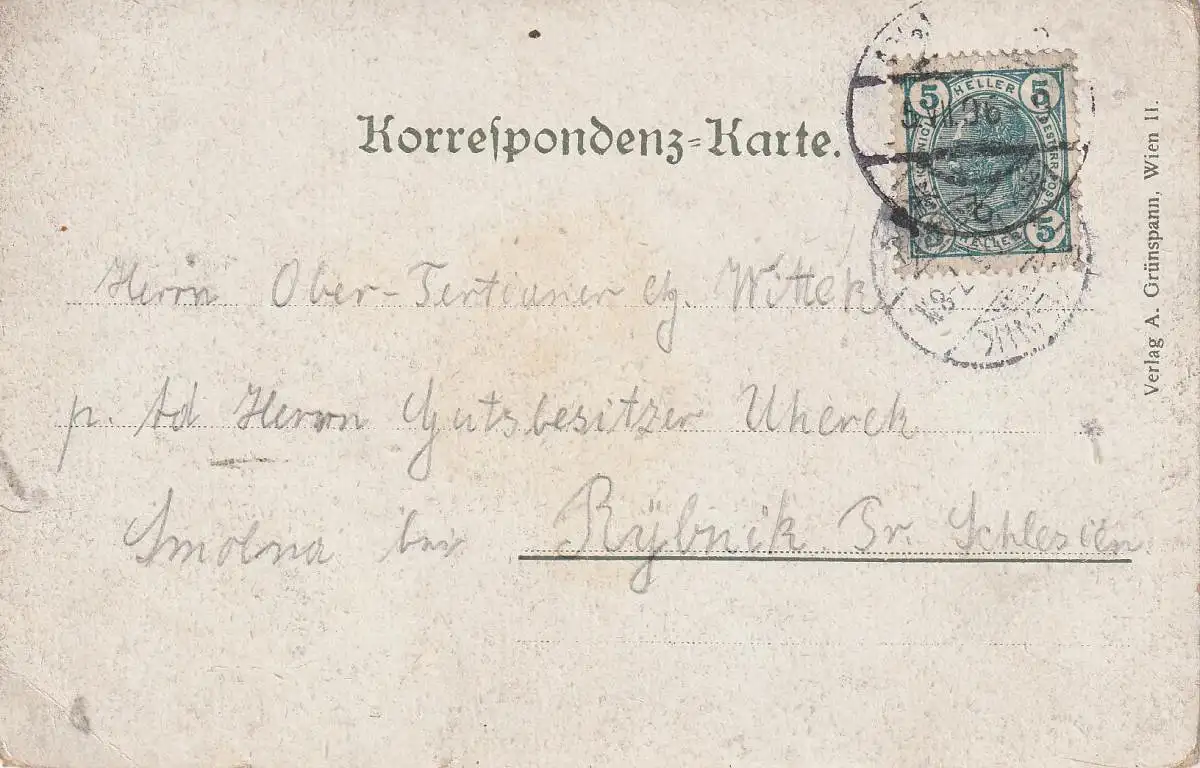 Korrespondenz-Karte.
5 HELLER 5
5 HELLER 5
Herrn Ober-Tertianer Wittek
p. Ad Herrn Gutsbesitzer Uherek
Smolna bei Rybnik Pr. Schlesien
Verlag A. Grünspann, Wien II.